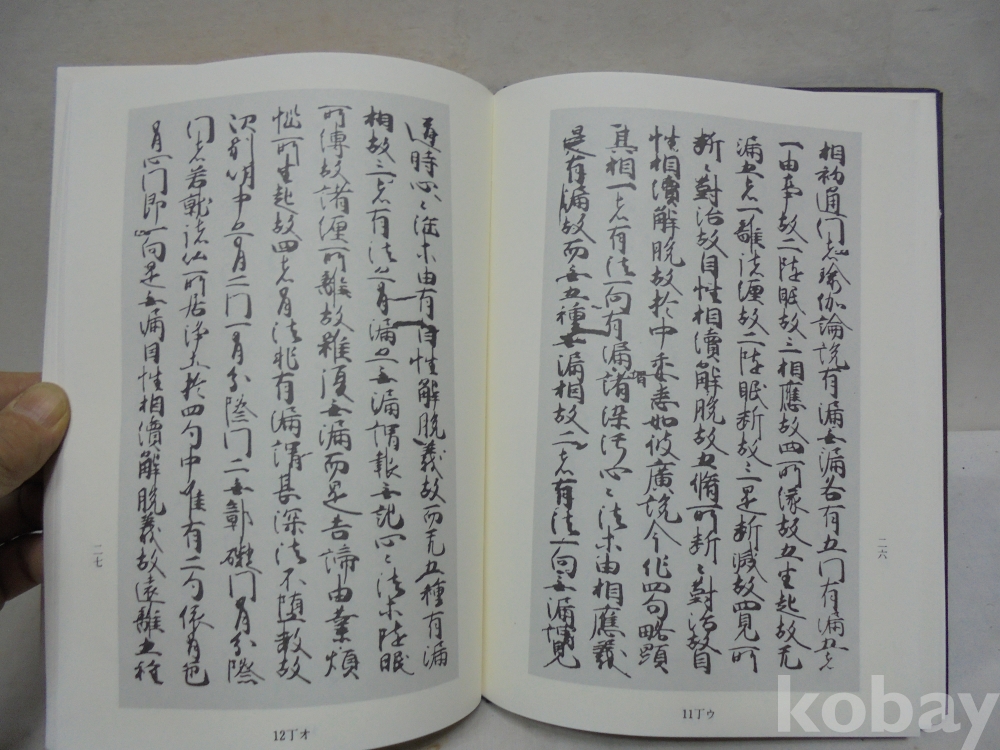 相初通門者瑜伽論説有漏無漏各有五門有漏五者
一由事故二随眠故三相應故四所縁故五生起故无
漏五者一離諸纏故二随眠断故三是断滅故四見所
断之對治故自性相續解脱故五脩所断之對治故自
性相續解脱故於中委悉如彼廣説今作四句略顕
其相一者有法一向有漏謂諸染汚心心法等由相應義
是有漏故而無五種無漏相故二者有法一向無漏謂見
道時心心法等由有自性解脱義故而无五種有漏
相故三者有法亦有漏亦無漏謂報無記心心法等随眠
所縛故諸纏所離故雖復無漏而是苦諦由業煩
悩所生起故四者有法非有漏謂甚深法不堕数故
次別明中亦有二門一有分際門二無彰礙門有分際
門者若就諸仏所居浄土於四句中唯有二句依有色
有心門即一向是無漏自性相續解脱義故遠離五種
二六
二七
11丁ウ
12丁オ
kobay